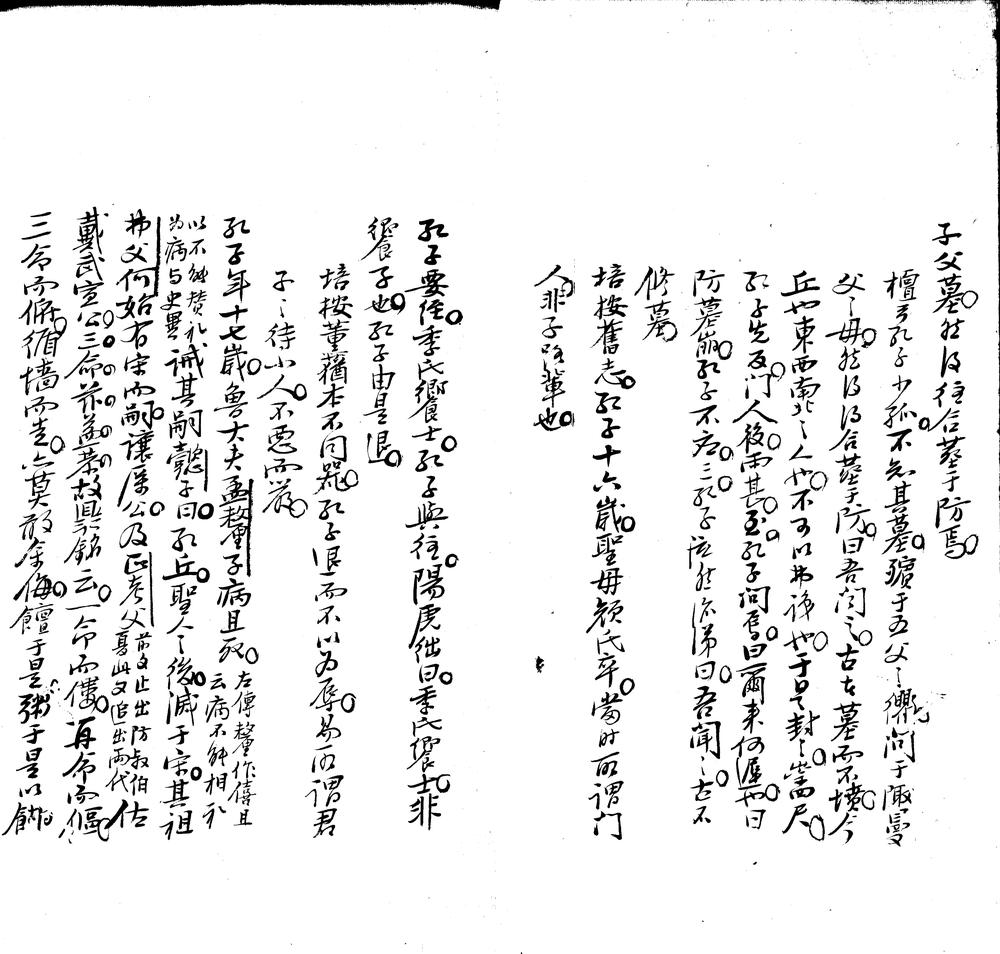 子父墓。然後往合葬于防焉。
檀弓孔子少孤。不知其墓。殯于五父之衢。問于郰曼
父之母。然後得合葬于防。曰吾聞之。古者墓而不墳。今
丘也東西南北之人也。不可以弗識也。于是封之。崇四尺。
孔子先反。門人後。雨甚。至。孔子問焉。曰爾來何遲也。曰
防墓崩。孔子不應。三。孔子泫然流涕曰。吾聞之。古不
修墓。
培按舊志。孔子十六歲。聖母顏氏卒。當時所謂門
人。非子路輩也。
孔子要絰。季氏饗士。孔子與往。陽虎絀曰。季氏饗士。非
饗子也。孔子由是退。
培按董蕕本不同器。孔子退而不以為辱。易所謂君
子之待小人。不惡而嚴。
孔子年十七歲。魯大夫孟釐子病且死。左傳釐作僖且云病不能相礼
以不能贊礼為病与史異誡其嗣懿子曰。孔丘。聖人之後。滅于宋。其祖
弗父何始有宋而嗣讓厲公。及正考父前文止出防叔伯夏此又追出兩代佐
戴武宣公。三命茲益恭。故鼎銘云。一命而僂。再命而傴。
三命而俯。循墻而走。亦莫敢余侮。饘于是。粥于是。以餬